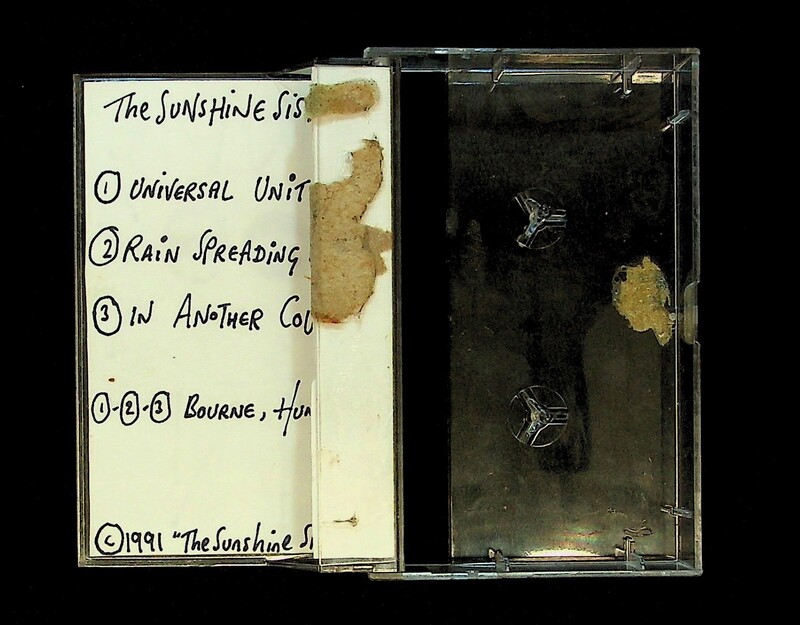 The SUNSHiNE SiS
① UNiVERSAL UNIT
② RAiN SPREADiNG
③ IN ANoTHER COU
①-②-③ BOURNE, HUN
© 1991 "The Sunshine Si